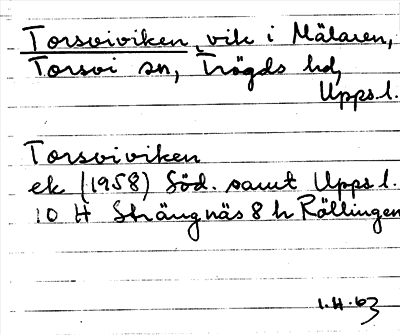 Torsviviken, vik i Mälaren,
Torsvi sn, Trögds hd,
Upps. l.
Torsviviken
ek (1958) Söd. samt Upps l.
10 H Strängnäs 8 h Rällingen
1.H.63